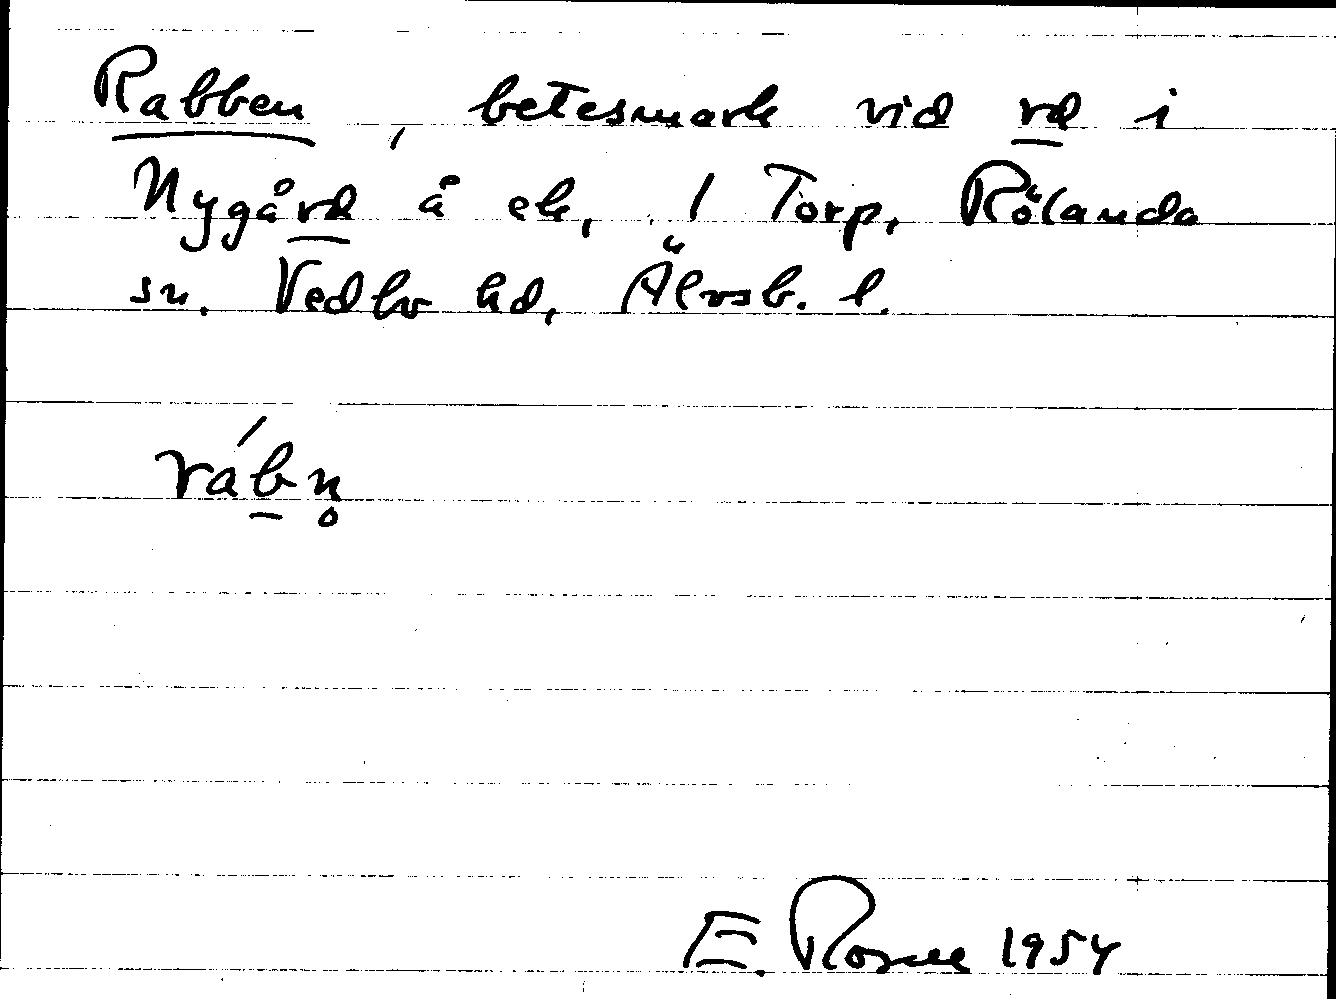 Rabben, betesmark vid rd i
Nygård å ek, 1 Torp, Rölanda
sn. Vedbo hd, Älvsb. l.
rábn̥
E. Rosell 1954